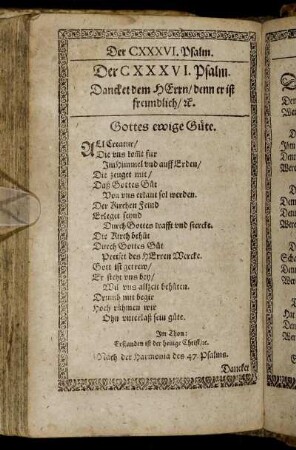 Der CXXXVI. Psalm.
Der CXXXVI. Psalm.
Dancket dem HErrn / denn er ist
freundlich / ꝛc.
Gottes ewige Güte.
All Creatur /
Die uns kompt für
Im Himmel vnd auff Erden /
Die zeuget mit /
Daß Gottes Güt
Von vns erkant sol werden.
Der Kirchen Feind
Erleget seynd
Durch Gottes krafft vnd stercke.
Die Kirch behüt
Durch Gottes Güt
Preiset des HErren Wercke.
Gott ist getrew /
Er steht vns bey /
Wil vns allzeit behüten.
Drumb mit begir
Hoch rühmen wir
Ohn vnterlaß sein güte.
Im Thon:
Erstanden ist der heilige Christ / ꝛc.
Nach der Harmonia des 47. Psalms.
Dancket